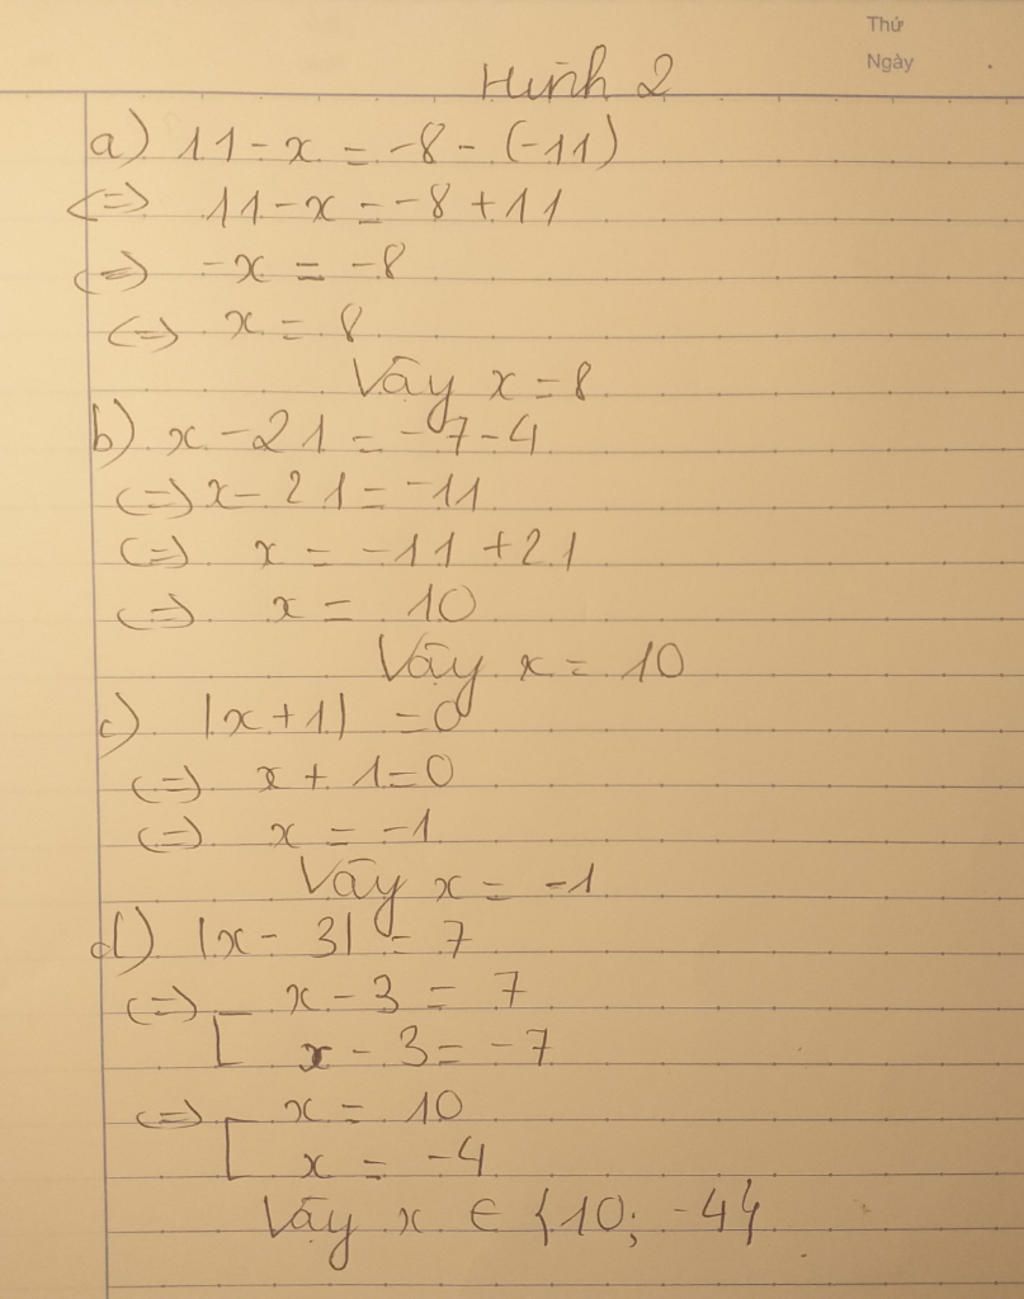 Thứ
Ngày
Hình 2
a) 11 - x = -8 - (-11)
<=> 11 - x = -8 + 11
<=> -x = -8
<=> x = 8
Vậy x = 8
b) x - 21 = -7 - 4
<=> x - 21 = -11
<=> x = -11 + 21
<=> x = 10
Vậy x = 10
c) |x + 1| = 0
<=> x + 1 = 0
<=> x = -1
Vậy x = -1
d) |x - 3| = 7
<=> [ x - 3 = 7
x - 3 = -7
<=> [ x = 10
x = -4
Vậy x ∈ {10; -4}